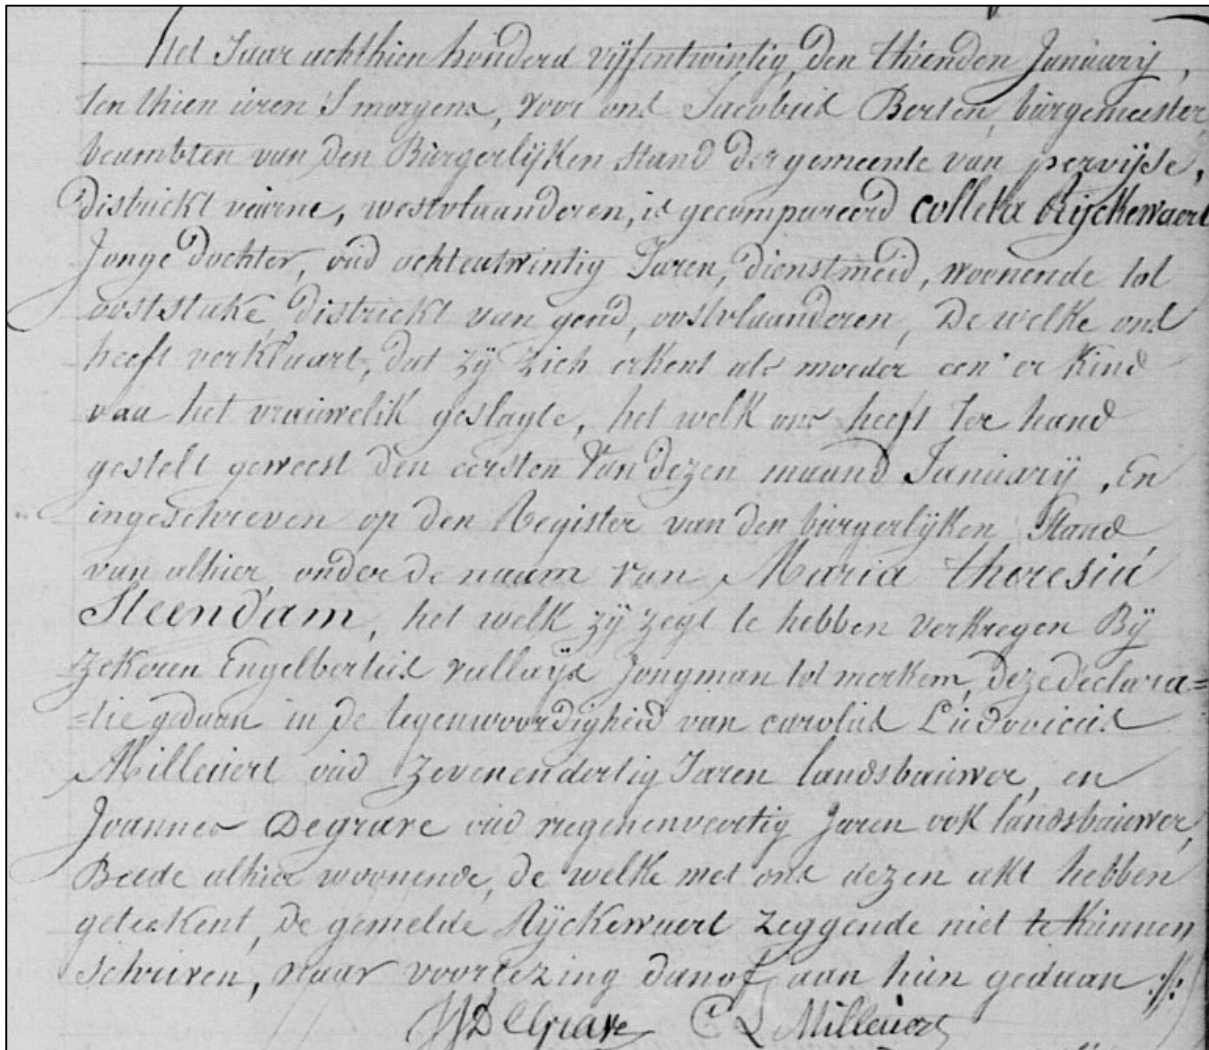 Het Jaar achthien honderd vijfentwintig, den thienden Januarij,
ten thien uren S'morgens, voor ons Jacobus Berten, burgemeester,
beambten van den Burgerlijken stand der gemeente van pervijse,
districkt veurne, westvlaanderen, is gecompareerd colleta Rijckewaert
Jonge dochter, oud achtentwintig Jaren, dienstmeid, woonende tot
ooststake, districkt van gend, oostvlaanderen, De welke ons
heeft verklaart, dat zij zich erkent als moeder een' er kind
van het vrauwelik geslagte, het welk ons heeft Ter hand
gestelt geweest den eersten Van dezen maand Januarij, En
ingeschreven op den Register van den burgerlijken Stand
van alhier onder de naam van Maria theresia
Steendam, het welk zij zegt te hebben verkregen Bij
zekeren Engelbertus vallaijs Jongman tot merkem, deze declara=
=tie gedaan in de tegenwoordigheid van carolus Ludovicus
Milleuert oud Zevenendertig Jaren landsbauwer, en
Joannes Degrave oud negenenveertig Jaren ook landsbauwer,
Beede alhier woonende, de welke met ons dezen akt hebben
geteekent, de gemelde Rijckewaert zeggende niet te kunnen
schriven, naar voorlezing danof aan hun gedaan ://:
DeGrave C L Milleuert